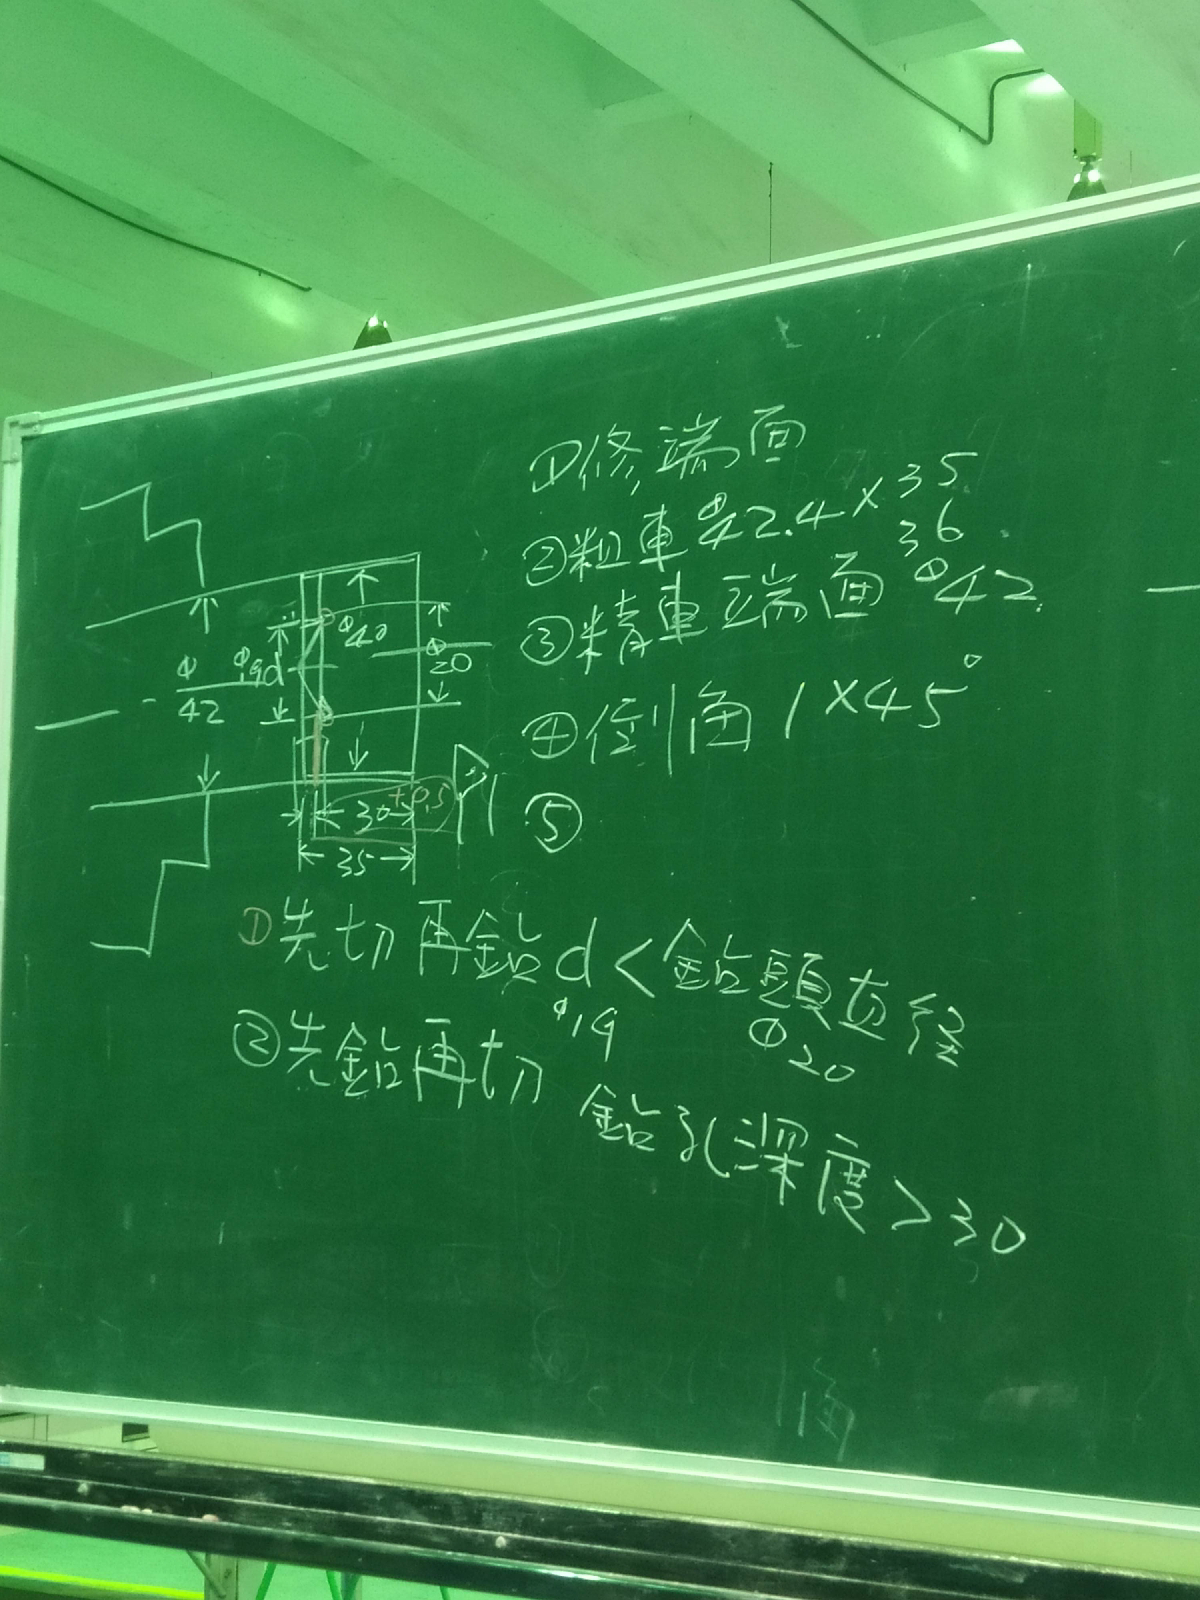 ①修端面
②粗車ϕ42.4×35
36
③精車端面ϕ42
④倒角1×45°
⑤
ϕ42
ϕ19d
ϕ42
ϕ20
30+0.5
35
①先切再鉆d<鉆頭直徑
ϕ19 ϕ20
②先鉆再切
鉆孔深度>30